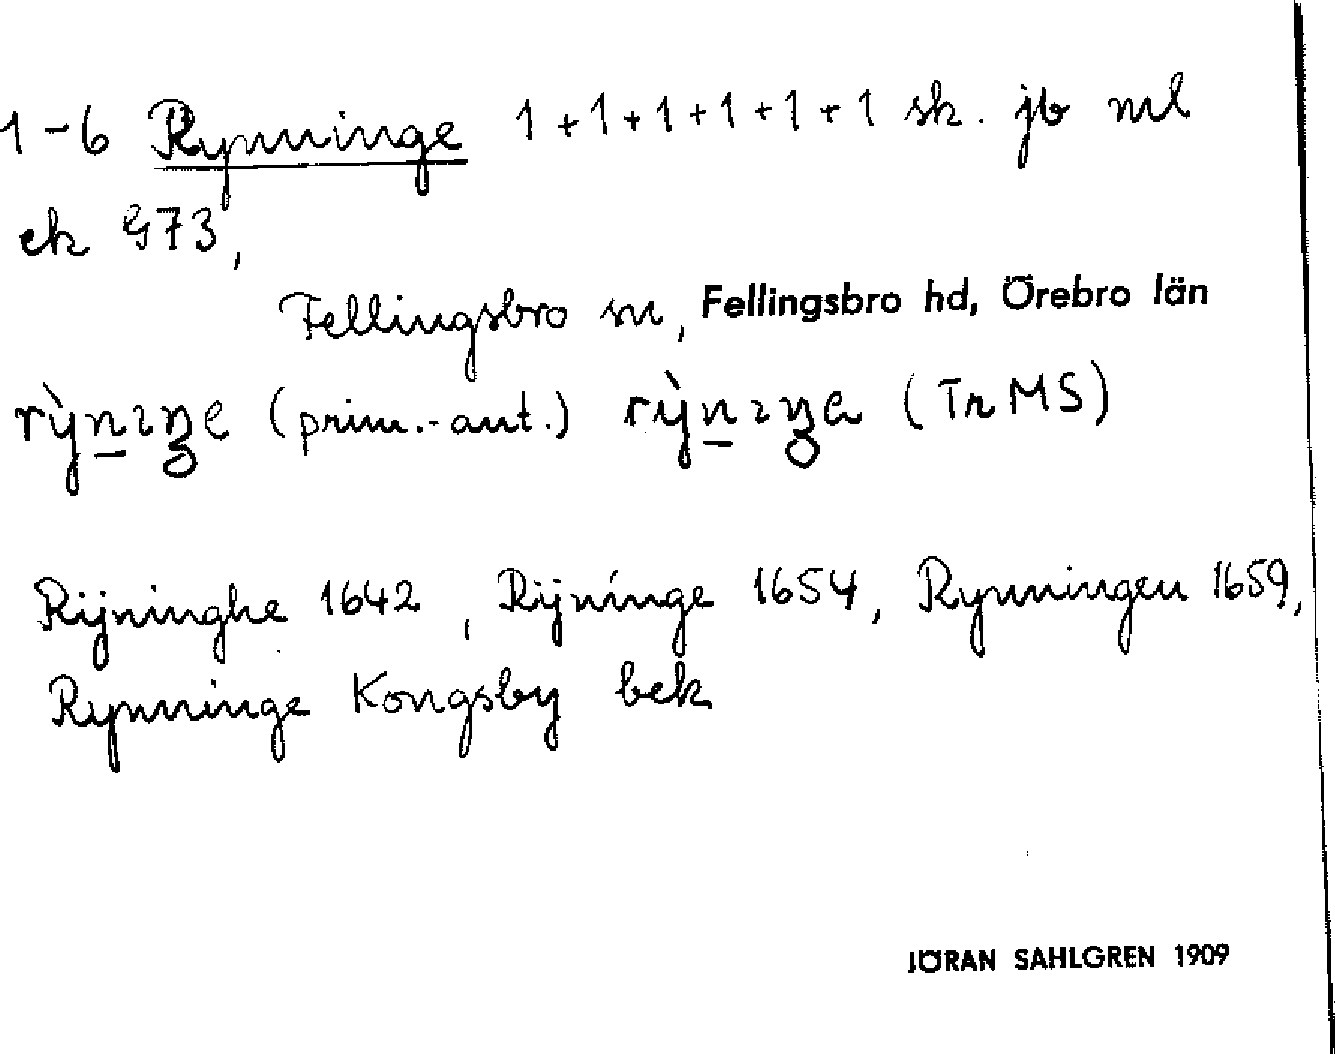 1-6 Rynninge 1+1+1+1+1+1 sk. jb ml
ek G73,
Fellingsbro sn, Fellingsbro hd, Örebro län
rỳnıŋe (prim.-ant.) rỳnıŋa (Tr MS)
Rijninghe 1642, Rijninge 1654, Rynningen 1659,
Rynninge Kongsby bek
JÖRAN SAHLGREN 1909